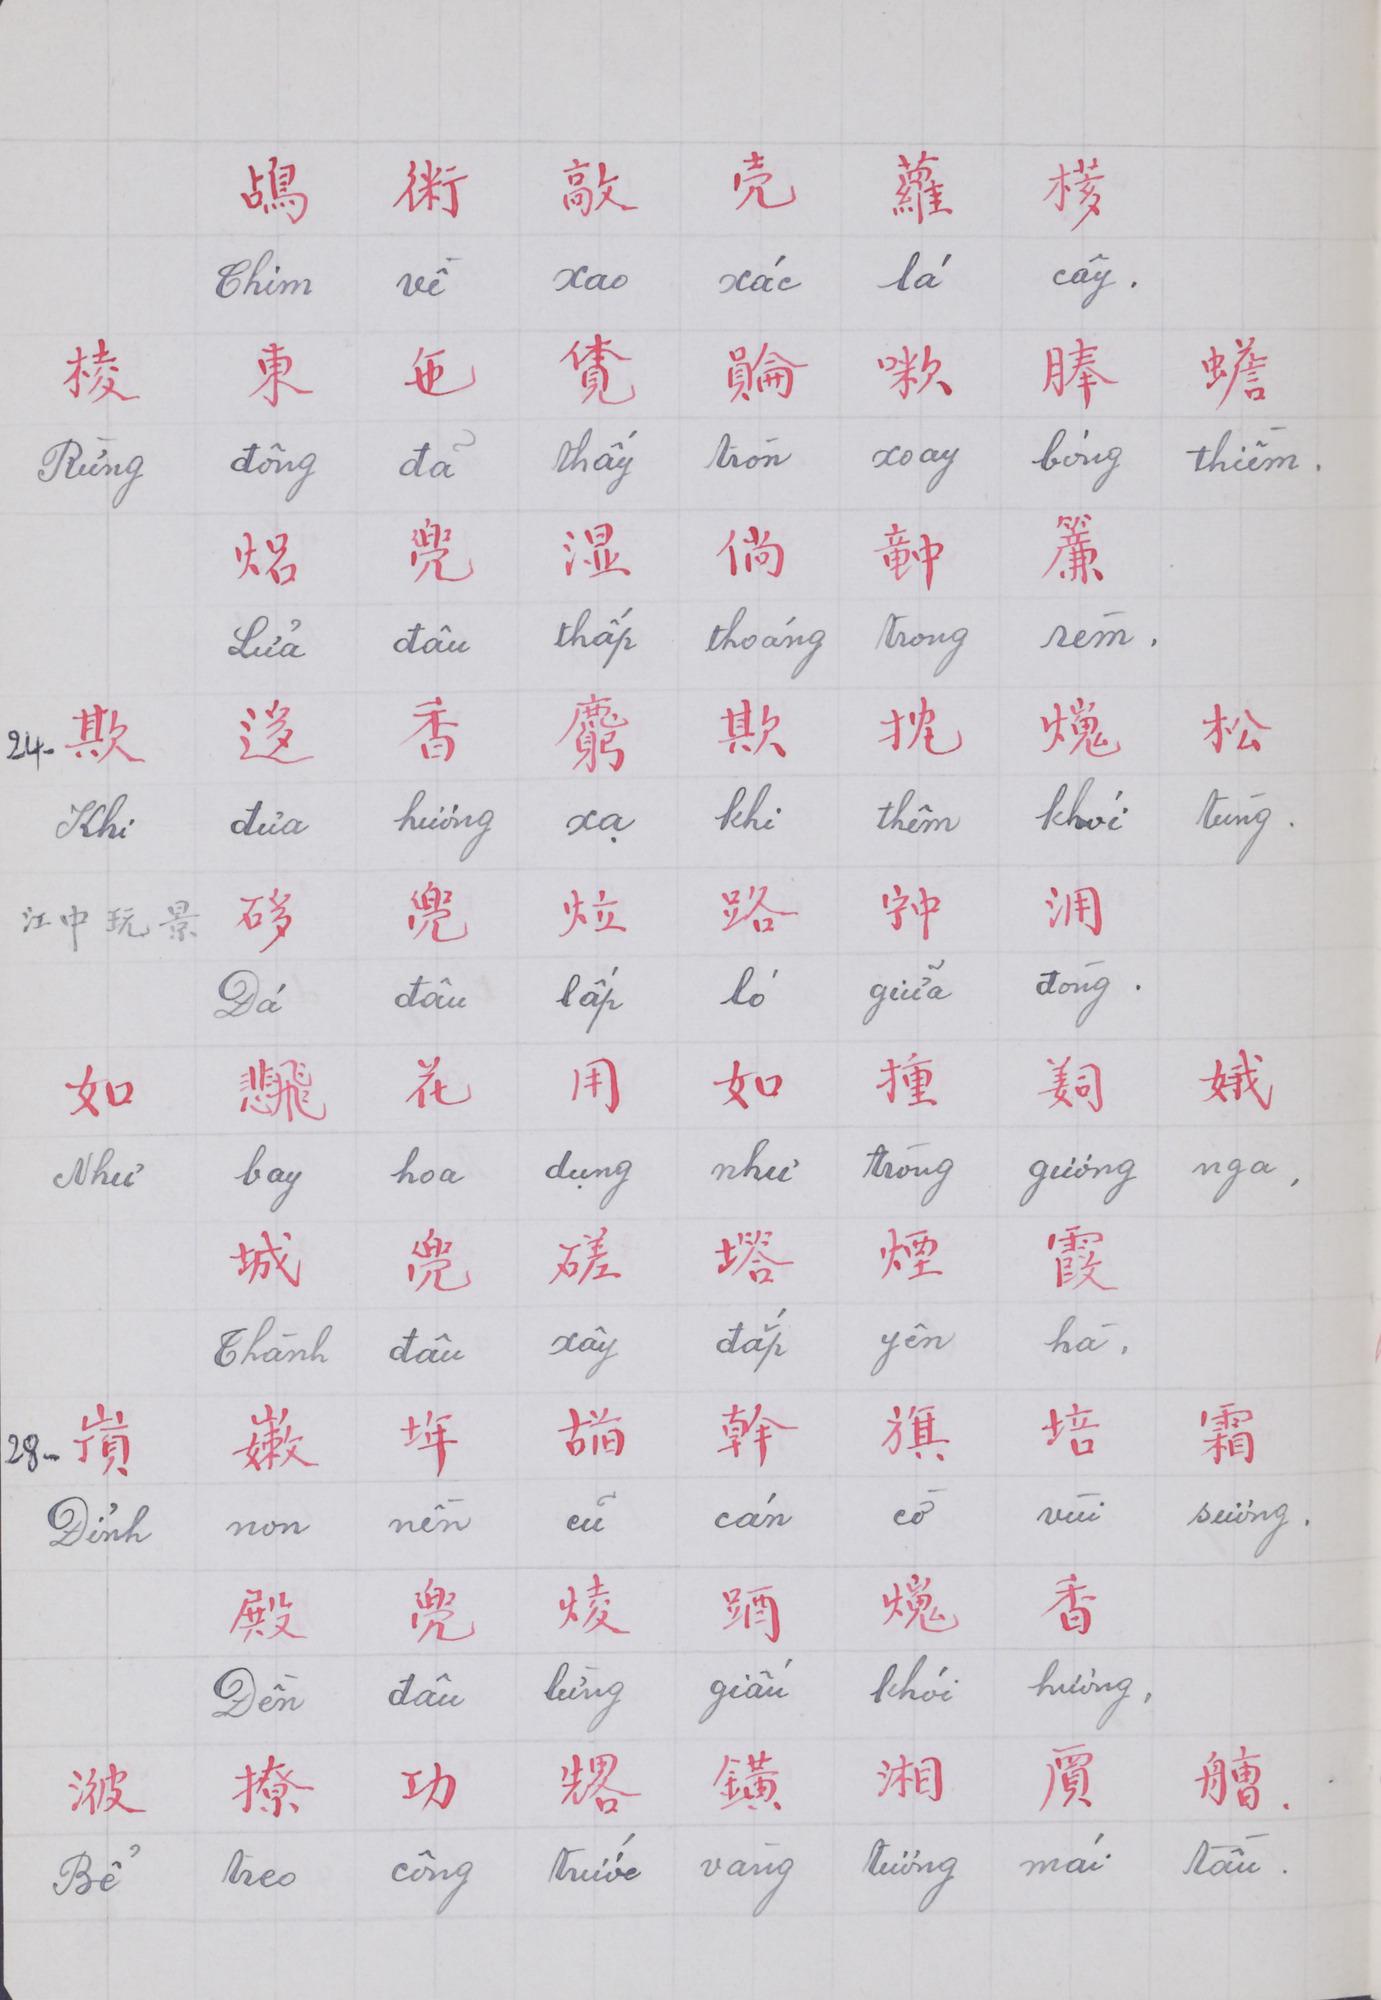 鴣 術 敲 壳 蘿 𣘃
Chim về xao xác lá cây.
棱 東 㐌 𧡊 𧷺 嗽 䏾 蟾
Rừng đông đã thấy tròn xoay bóng thiềm.
焒 兠 湿 倘 𥪝 簾
Lửa đâu thấp thoáng trong rèm.
24- 欺 迻 香 麝 欺 㧲 𤌋 松
Khi đưa hương xạ khi thêm khói tùng.
江中玩景 𥒥 兠 㕸 路 𡨌 泂
Đá đâu lấp ló giữa dòng.
如 𩙻 花 用 如 撞 𦎛 娥
Như bay hoa dụng như trông gương nga,
城 兠 磋 塔 煙 霞
Thành đâu xây đắp yên hà,
28- 𡶀 嫩 𡋂 𦹵 幹 旗 培 霜
Đỉnh non nền cũ cán cờ vùi sương.
殿 兠 㷍 𨠲 𤌋 香
Đền đâu lừng giấu khói hương,
㴜 撩 功 𠓀 鐄 湘 厧 艚.
Bể treo công trước vàng tương mái tàu.